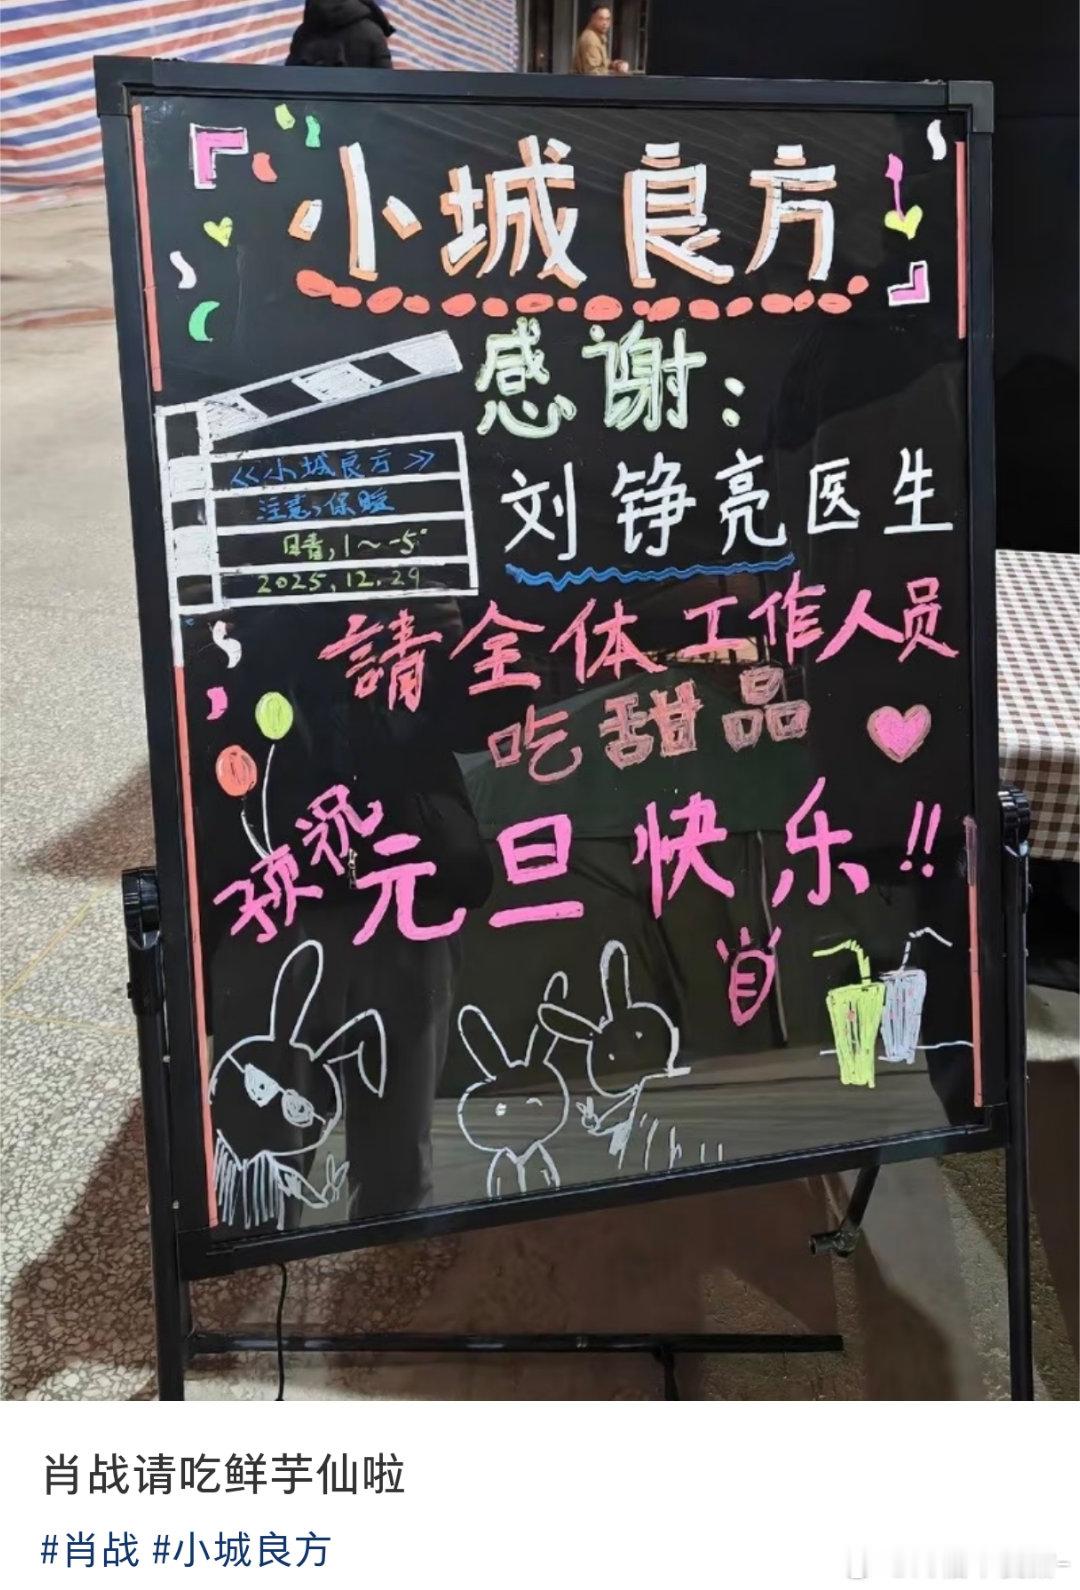 小城良方
感谢:
《小城良方》
注意,保暖
日青,1~-5°
2025.12.29
刘铮亮医生
請全体工作人员
吃甜品
预祝元旦快乐!!
肖战请吃鲜芋仙啦
#肖战 #小城良方